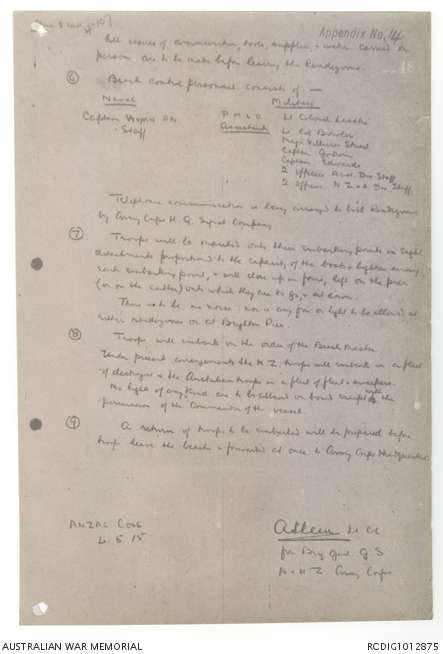 Appendix No. 14
48
All issues of ammunition, tools, supplies, & water carried on
person are to be made before leaving the Rendezvous.
(6) Beach Control personnel consists of :—
Naval Military
Captain RN P M L O Lt Colonel
- Staff Assistants Lt Col
Major Villiers Stuart
Captain
Captain Edwards
2 Officers Aust. Div Staff
2 Officers N Z & A Div Staff
Telephone communication is being arranged to both Rendezvous
by Army Corps H.Q. Signal Company
(7) Troops will be marched onto their embarking points in
detachments proportioned to the capacity of the boats & lighters serving
each embarking point, & will close up in fours, left on the pier
(or on the ) onto which they are to go, & sit down.
There is to be no noise: nor is any fire or light to be allowed at
either rendezvous or at Brighton Pier.
(8) Troops will embark on the order of the Beach Master
Under present arrangements the N.Z. troops will embark in a fleet
of destroyers & the Australian troops in a fleet of fleet-sweepers.
No light of any kind are to be allowed on board except with the
permission of the Commander of the vessel.
(9) A return of troops to be embarked will be prepared before
troops leave the beach & forwarded at once to Army Corps Headquarters
ANZAC Cove
4.5.15
Lt Col
for Brig Genl G S
A & N Z Army Corps
AUSTRALIAN WAR MEMORIAL
RCDIG1012875